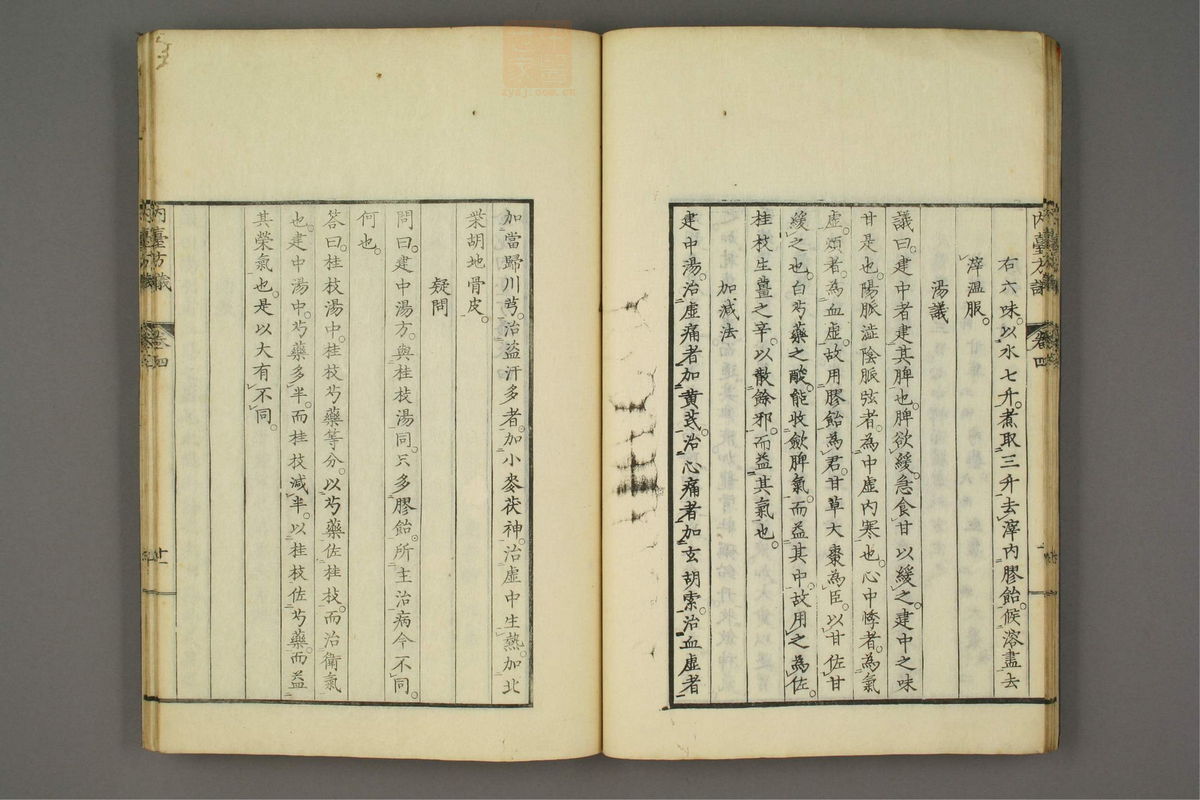 內臺方議 卷四
右六味。以水七升。煮取三升。去滓。內膠飴。候溶盡。去
滓。溫服。
湯議
議曰。建中者。建其脾也。脾欲緩。急食甘以緩之。建中之味
甘是也。陽脈澁陰脈弦者。為中虛內寒也。心中悸者。為氣
虛。煩者。為血虛。故用膠飴為君。甘草大棗為臣。以甘佐甘
緩之也。白芍藥之酸。能收斂脾氣。而益其中。故用之為佐。
桂枝生薑之辛。以散餘邪。而益其氣也。
加減法
建中湯。治虛痛者。加黃芪。治心痛者。加玄胡索。治血虛者
加當歸川芎。治盜汗多者。加小麥茯神。治虛中生熱。加北
柴胡地骨皮。
疑問
問曰。建中湯方。與桂枝湯同。只多膠飴。所主治病今不同。
何也。
答曰。桂枝湯中。桂枝芍藥等分。以芍藥佐桂枝。而治衛氣
也。建中湯中。芍藥多半。而桂枝減半。以桂枝佐芍藥。而益
其榮氣也。是以大有不同。
內臺方議 卷四 廿一